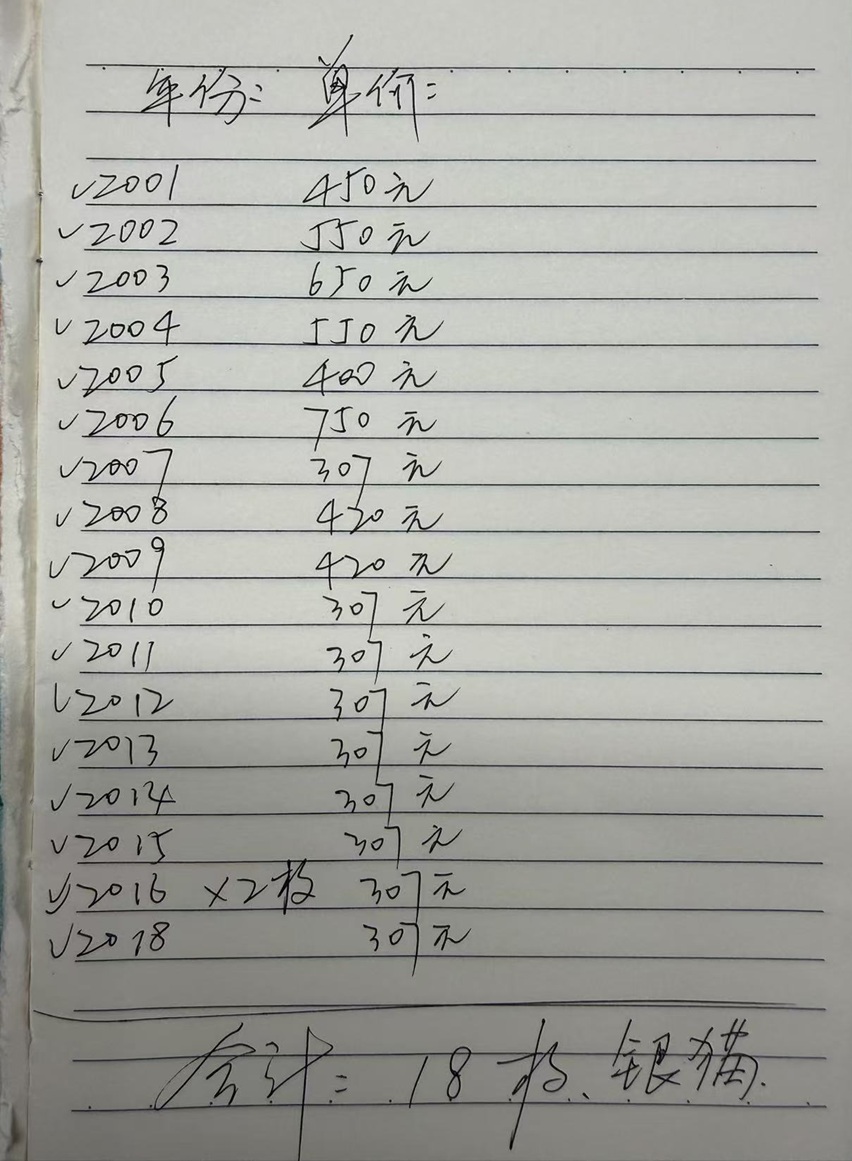 年份: 单价:
✓2001 450元
✓2002 550元
✓2003 650元
✓2004 550元
✓2005 400元
✓2006 750元
✓2007 307元
✓2008 420元
✓2009 420元
✓2010 307元
✓2011 307元
✓2012 307元
✓2013 307元
✓2014 307元
✓2015 307元
✓2016 ×2枚 307元
✓2018 307元
合计: 18枚、银猫.